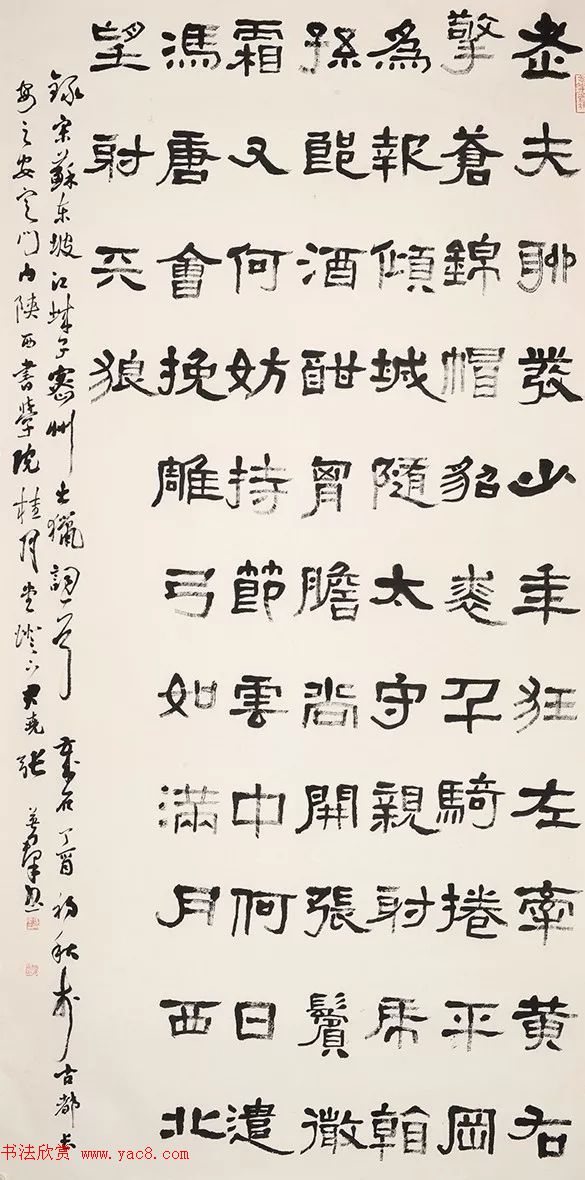 老夫聊發少年狂左牽黃右
擎蒼錦帽貂裘千騎捲平岡
為報傾城隨太守親射虎看
孫郎酒酣胸膽尚開張鬢微
霜又何妨持節雲中何日遣
馮唐會挽雕弓如滿月西北
望射天狼
錄宋蘇東坡江城子密州出獵詞一首歲在丁酉初秋於古都長
安之安定門內陝西書學院桂月堂燈下張
书法欣赏 www.yac8.com